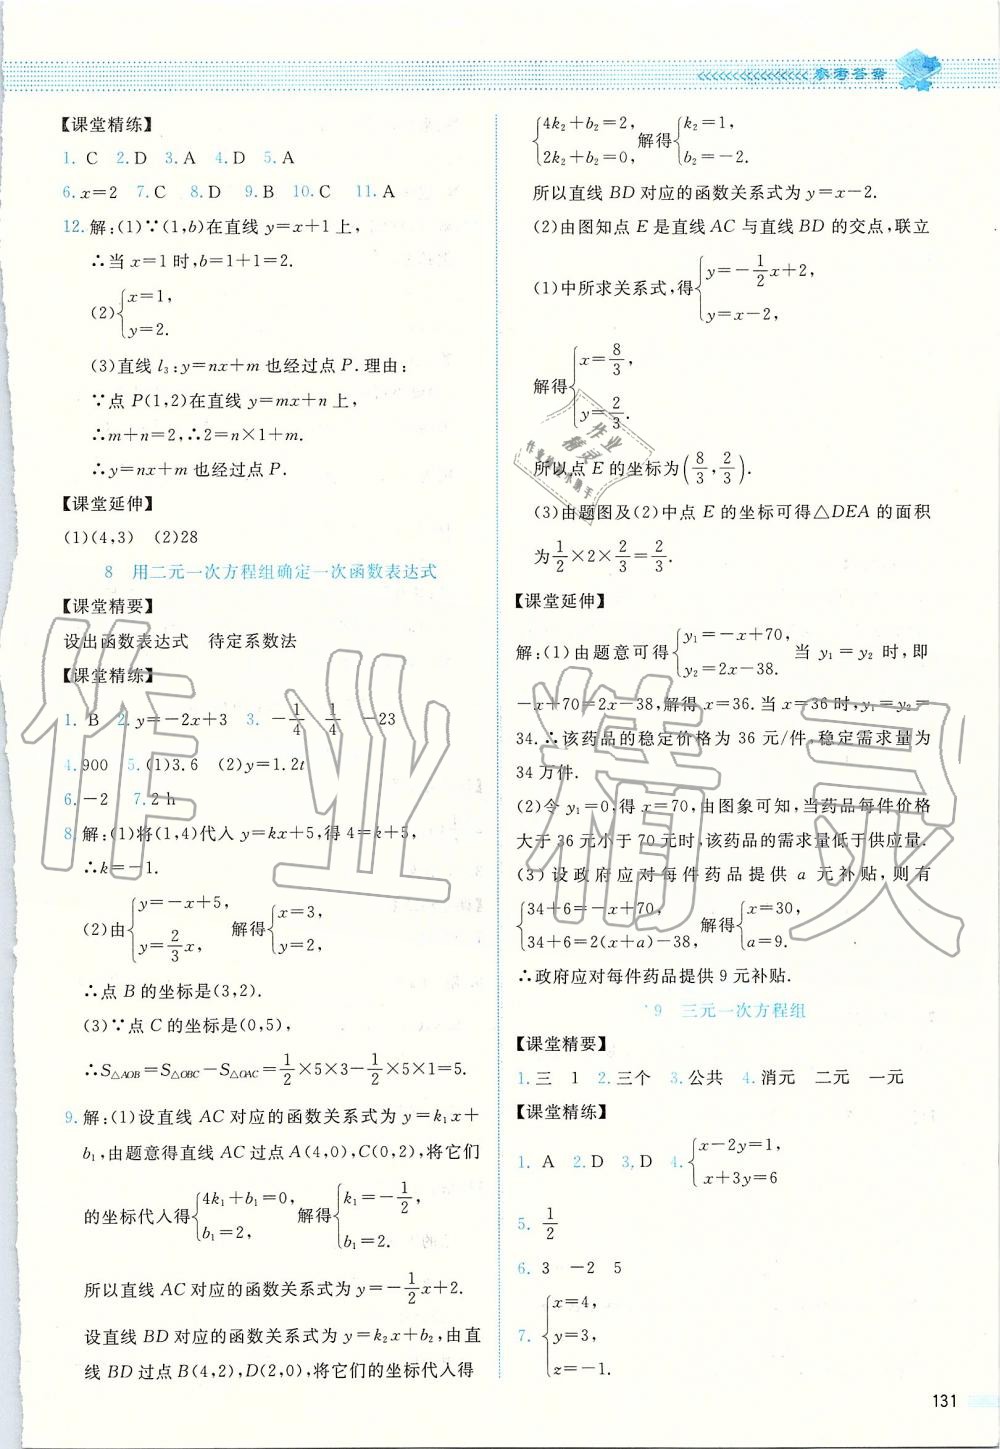 参考答案
【课堂精练】
1. C 2. D 3. A 4. D 5. A
6. x=2 7. C 8. D 9. B 10. C 11. A
12. 解:(1)∵(1,b)在直线 y=x+1 上,
∴当 x=1 时,b=1+1=2.
(2){x=1,
y=2.
(3)直线 l₃:y=nx+m 也经过点 P. 理由:
∵点 P(1,2)在直线 y=mx+n 上,
∴m+n=2,∴2=n×1+m.
∴y=nx+m 也经过点 P.
【课堂延伸】
(1)(4,3) (2)28
8 用二元一次方程组确定一次函数表达式
【课堂精要】
设出函数表达式 待定系数法
【课堂精练】
1. B 2. y=-2x+3 3. -1/4 1/4 -23
4. 900 5. (1)3.6 (2)y=1.2t
6. -2 7. 2 h
8. 解:(1)将(1,4)代入 y=kx+5,得 4=k+5,
∴k=-1.
(2)由{y=-x+5, y=2/3x, 解得{x=3, y=2,
∴点 B 的坐标是(3,2).
(3)∵点 C 的坐标是(0,5),
∴S△AOB=S△OBC-S△OAC=1/2×5×3-1/2×5×1=5.
9. 解:(1)设直线 AC 对应的函数关系式为 y=k₁x+
b₁,由题意得直线 AC 过点 A(4,0),C(0,2),将它们
的坐标代入得{4k₁+b₁=0, b₁=2, 解得{k₁=-1/2, b₁=2.
所以直线 AC 对应的函数关系式为 y=-1/2x+2.
设直线 BD 对应的函数关系式为 y=k₂x+b₂,由直
线 BD 过点 B(4,2),D(2,0),将它们的坐标代入得
{4k₂+b₂=2, 2k₂+b₂=0, 解得{k₂=1, b₂=-2.
所以直线 BD 对应的函数关系式为 y=x-2.
(2)由图知点 E 是直线 AC 与直线 BD 的交点,联立
(1)中所求关系式,得{y=-1/2x+2, y=x-2,
解得{x=8/3, y=2/3.
所以点 E 的坐标为(8/3,2/3).
(3)由题图及(2)中点 E 的坐标可得△DEA 的面积
为1/2×2×2/3=2/3.
【课堂延伸】
解:(1)由题意可得{y₁=-x+70, y₂=2x-38. 当 y₁=y₂ 时,即
-x+70=2x-38,解得 x=36. 当 x=36 时,y₁=y₂=
34. ∴该药品的稳定价格为 36 元/件,稳定需求量为
34 万件.
(2)令 y₁=0,得 x=70,由图象可知,当药品每件价格
大于 36 元小于 70 元时,该药品的需求量低于供应量.
(3)设政府应对每件药品提供 a 元补贴,则有
{34+6=-x+70, 34+6=2(x+a)-38, 解得{x=30, a=9.
∴政府应对每件药品提供 9 元补贴.
9 三元一次方程组
【课堂精要】
1. 三 1 2. 三个 3. 公共 4. 消元 二元 一元
【课堂精练】
1. A 2. D 3. D 4. {x-2y=1, x+3y=6
5. 1/2
6. 3 -2 5
7. {x=4,
y=3,
z=-1.
131
作业精灵
作业
精灵